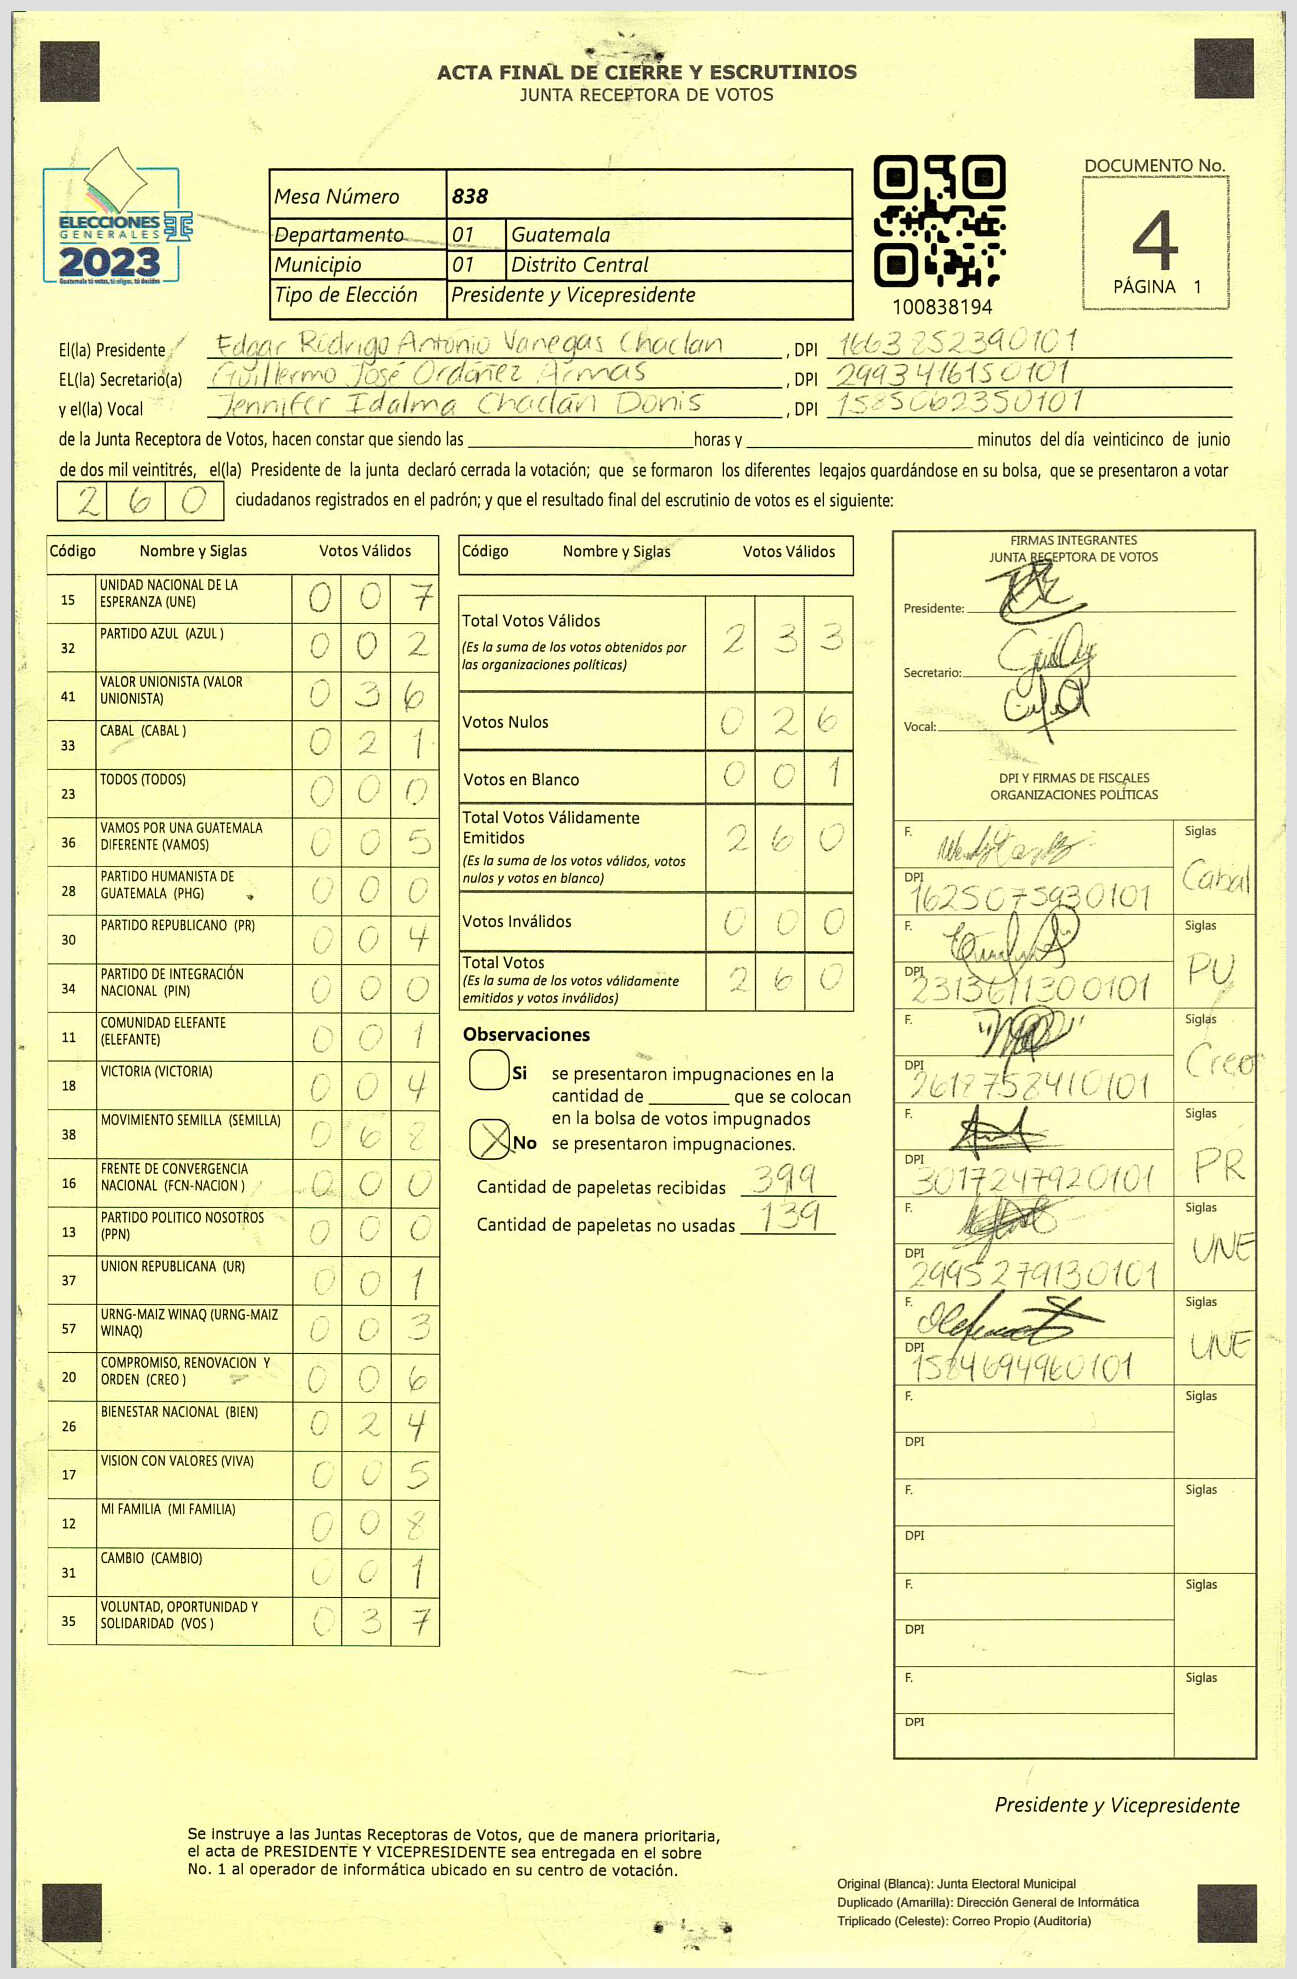 ACTA FINAL DE CIERRE Y ESCRUTINIOS
JUNTA RECEPTORA DE VOTOS
ELECCIONES
GENERALES
2023
Guatemala tú votas, tú eliges, tú decides
Mesa Número 838
Departamento 01 Guatemala
Municipio 01 Distrito Central
Tipo de Elección Presidente y Vicepresidente
100838194
DOCUMENTO No.
4
PÁGINA 1
El(la) Presidente Edgar Rodrigo Antonio Vanegas Chaclan , DPI 1663252390101
EL(la) Secretario(a) Guillermo José Ordóñez Armas , DPI 2993416150101
y el(la) Vocal Jennifer Idalma Chaclán Donis , DPI 1585062350101
de la Junta Receptora de Votos, hacen constar que siendo las horas y minutos del día veinticinco de junio
de dos mil veintitrés, el(la) Presidente de la junta declaró cerrada la votación; que se formaron los diferentes legajos guardándose en su bolsa, que se presentaron a votar
2 6 0 ciudadanos registrados en el padrón; y que el resultado final del escrutinio de votos es el siguiente:
Código Nombre y Siglas Votos Válidos
15 UNIDAD NACIONAL DE LA
ESPERANZA (UNE) 0 0 7
32 PARTIDO AZUL (AZUL ) 0 0 2
41 VALOR UNIONISTA (VALOR
UNIONISTA) 0 3 6
33 CABAL (CABAL ) 0 2 1
23 TODOS (TODOS) 0 0 0
36 VAMOS POR UNA GUATEMALA
DIFERENTE (VAMOS) 0 0 5
28 PARTIDO HUMANISTA DE
GUATEMALA (PHG) 0 0 0
30 PARTIDO REPUBLICANO (PR) 0 0 4
34 PARTIDO DE INTEGRACIÓN
NACIONAL (PIN) 0 0 0
11 COMUNIDAD ELEFANTE
(ELEFANTE) 0 0 1
18 VICTORIA (VICTORIA) 0 0 4
38 MOVIMIENTO SEMILLA (SEMILLA) 0 6 8
16 FRENTE DE CONVERGENCIA
NACIONAL (FCN-NACION ) 0 0 0
13 PARTIDO POLITICO NOSOTROS
(PPN) 0 0 0
37 UNION REPUBLICANA (UR) 0 0 1
57 URNG-MAIZ WINAQ (URNG-MAIZ
WINAQ) 0 0 3
20 COMPROMISO, RENOVACION Y
ORDEN (CREO ) 0 0 6
26 BIENESTAR NACIONAL (BIEN) 0 2 4
17 VISION CON VALORES (VIVA) 0 0 5
12 MI FAMILIA (MI FAMILIA) 0 0 8
31 CAMBIO (CAMBIO) 0 0 1
35 VOLUNTAD, OPORTUNIDAD Y
SOLIDARIDAD (VOS ) 0 3 7
Código Nombre y Siglas Votos Válidos
Total Votos Válidos 2 3 3
(Es la suma de los votos obtenidos por
las organizaciones políticas)
Votos Nulos 0 2 6
Votos en Blanco 0 0 1
Total Votos Válidamente
Emitidos 2 6 0
(Es la suma de los votos válidos, votos
nulos y votos en blanco)
Votos Inválidos 0 0 0
Total Votos 2 6 0
(Es la suma de los votos válidamente
emitidos y votos inválidos)
Observaciones
Si se presentaron impugnaciones en la
cantidad de que se colocan
en la bolsa de votos impugnados
X No se presentaron impugnaciones.
Cantidad de papeletas recibidas 399
Cantidad de papeletas no usadas 139
FIRMAS INTEGRANTES
JUNTA RECEPTORA DE VOTOS
Presidente:
Secretario:
Vocal:
DPI Y FIRMAS DE FISCALES
ORGANIZACIONES POLÍTICAS
F. Siglas
DPI 1625075930101 Cabal
F. Siglas
DPI 2313611300101 PU
F. Siglas
DPI 2618758410101 Creo
F. Siglas
DPI 3017247920101 PR
F. Siglas
DPI 2995279130101 UNE
F. Siglas
DPI 1584694960101 UNE
F. Siglas
DPI
F. Siglas
DPI
F. Siglas
DPI
F. Siglas
DPI
Presidente y Vicepresidente
Se instruye a las Juntas Receptoras de Votos, que de manera prioritaria,
el acta de PRESIDENTE Y VICEPRESIDENTE sea entregada en el sobre
No. 1 al operador de informática ubicado en su centro de votación.
Original (Blanca): Junta Electoral Municipal
Duplicado (Amarilla): Dirección General de Informática
Triplicado (Celeste): Correo Propio (Auditoría)